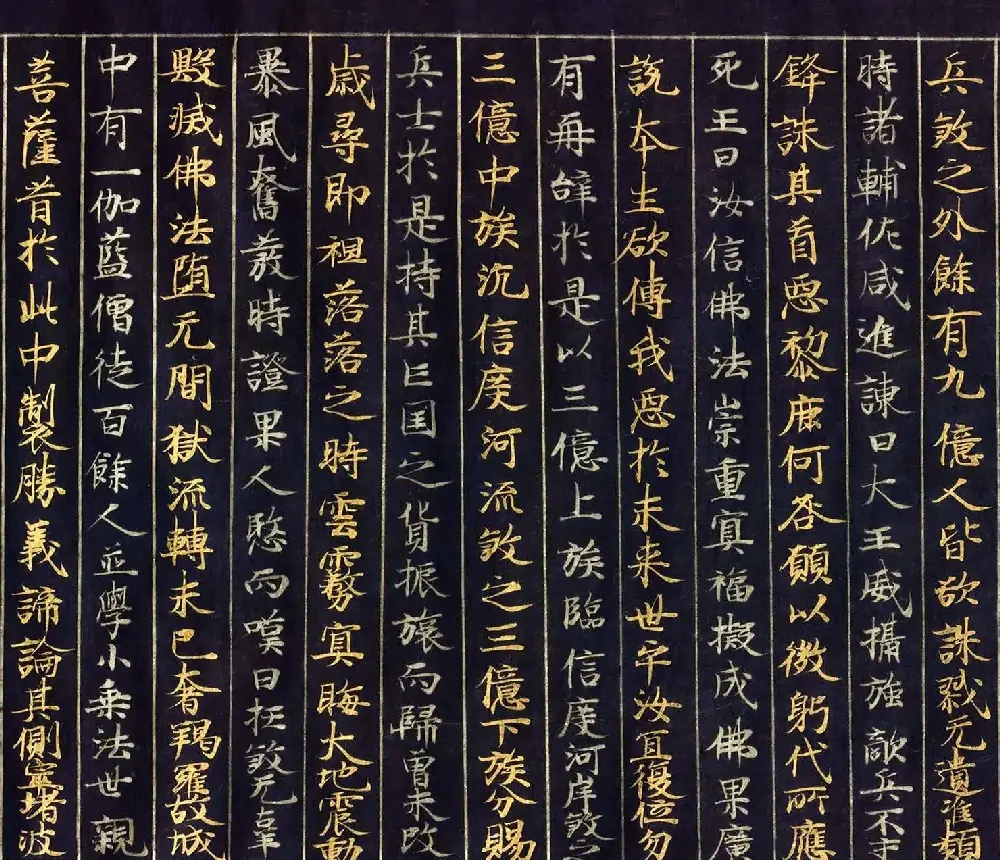 兵煞之外餘有九億人皆欲誅戮无遺准類
時諸輔佐咸進諫曰大王威攝強敵兵不
鋒誅其首惡黎庶何咎願以微躬代所應
死王曰汝信佛法崇重冥福擬成佛果廣
說本生欲傳我惡於未来世乎汝宜復位勿
有再辝於是以三億上族臨信度河岸煞之
三億中族沉信度河流煞之三億下族分賜
兵士於是持其亡囯之貨振旅而歸曾未改
歲尋即祖落落之時雲霧冥晦大地震動
暴風奮發時證果人愍而嘆曰枉煞无辜
毀滅佛法墮无間獄流轉未已奢羯羅故城
中有一伽藍僧徒百餘人並學小乘法世親
菩薩昔於此中製勝義諦論其側窣堵波